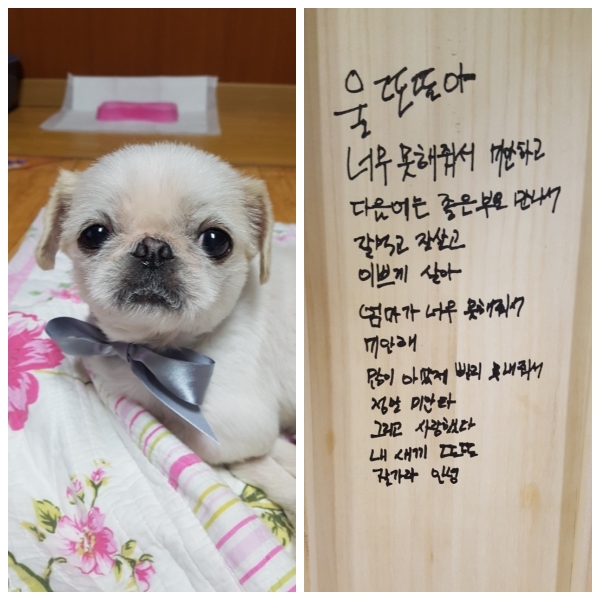 울 또또야
너무 못해줘서 미안하고
다음에는 좋은부모 만나서
잘먹고 잘살고
이쁘게 살아
엄마가 너무 못해줘서
미안해
많이 아팠제 빨리 못보내줘서
정말 미안타
그리고 사랑했다
내 새끼 또또
잘가라 안녕